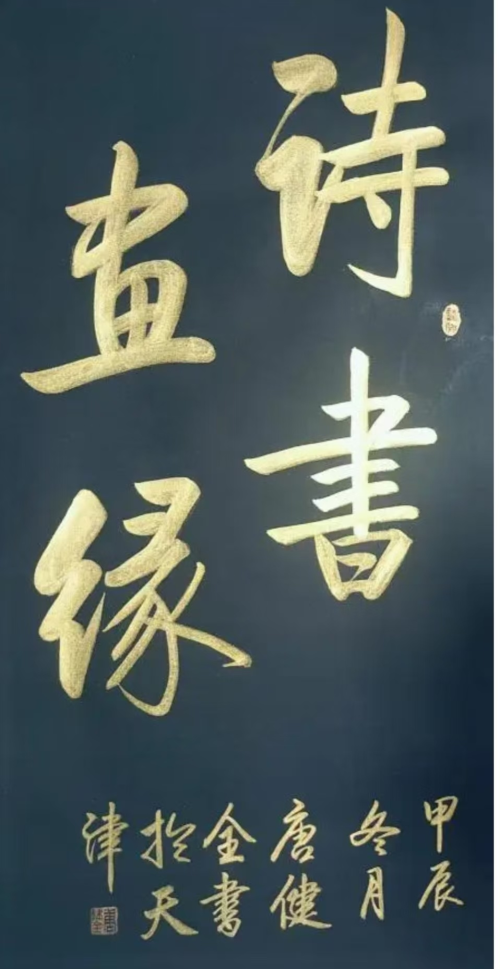 詩書
畫緣
甲辰
冬月
唐健
全書
於天
津